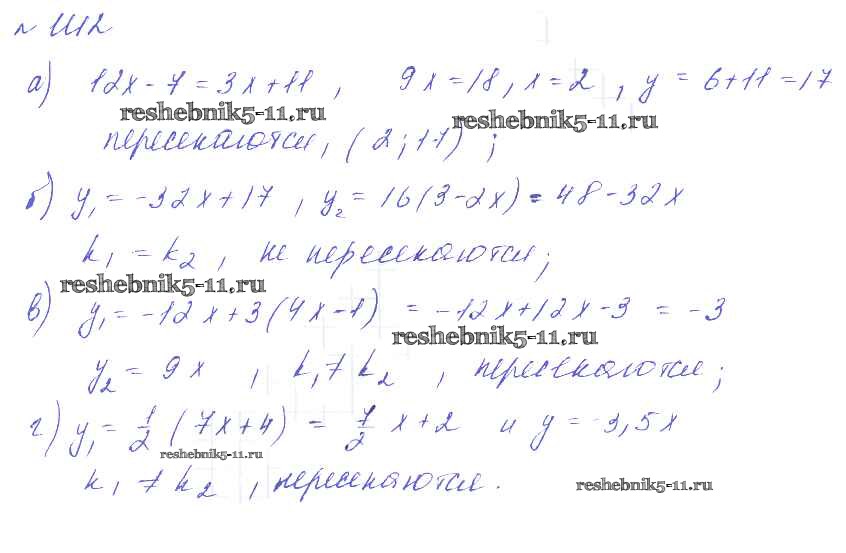 № 1112
а) 12x - 7 = 3x + 11 , 9x = 18, x = 2 , y = 6 + 11 = 17
reshebnik5-11.ru reshebnik5-11.ru
пересекаются, (2; 17) ;
б) y₁ = -32x + 17 , y₂ = 16(3 - 2x) = 48 - 32x
k₁ = k₂ , не пересекаются;
reshebnik5-11.ru
в) y₁ = -12x + 3(4x - 1) = -12x + 12x - 3 = -3
reshebnik5-11.ru
y₂ = 9x , k₁ ≠ k₂ , пересекаются;
г) y₁ = 1/2 (7x + 4) = 7/2 x + 2 и y = -3,5x
reshebnik5-11.ru
k₁ ≠ k₂ , пересекаются.
reshebnik5-11.ru